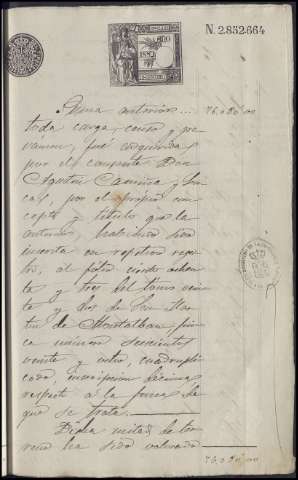 N. 2.852.664
Suma anterior... 76.080,00
toda carga, censo y gra-
vámen, fué adquirida
por el causante Don
Agustin y
por el propio con-
cepto y título que la
anterior, habiendo sido
inscrita en registro
al folio ciento ochen-
ta y tres del tomo vein-
te y dos de San Mar-
tin de fin-
ca número seiscientos
veinte y ocho, cuadrupli-
cada, inscripcion décima
respecto á la finca de
que se trata.
Dicha mitad de ter-
reno ha sido valorada
76.080,00